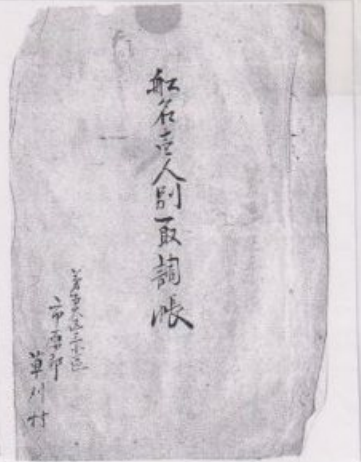 舡名壱人別取調帳
第大区三小区
市原郡
草刈村